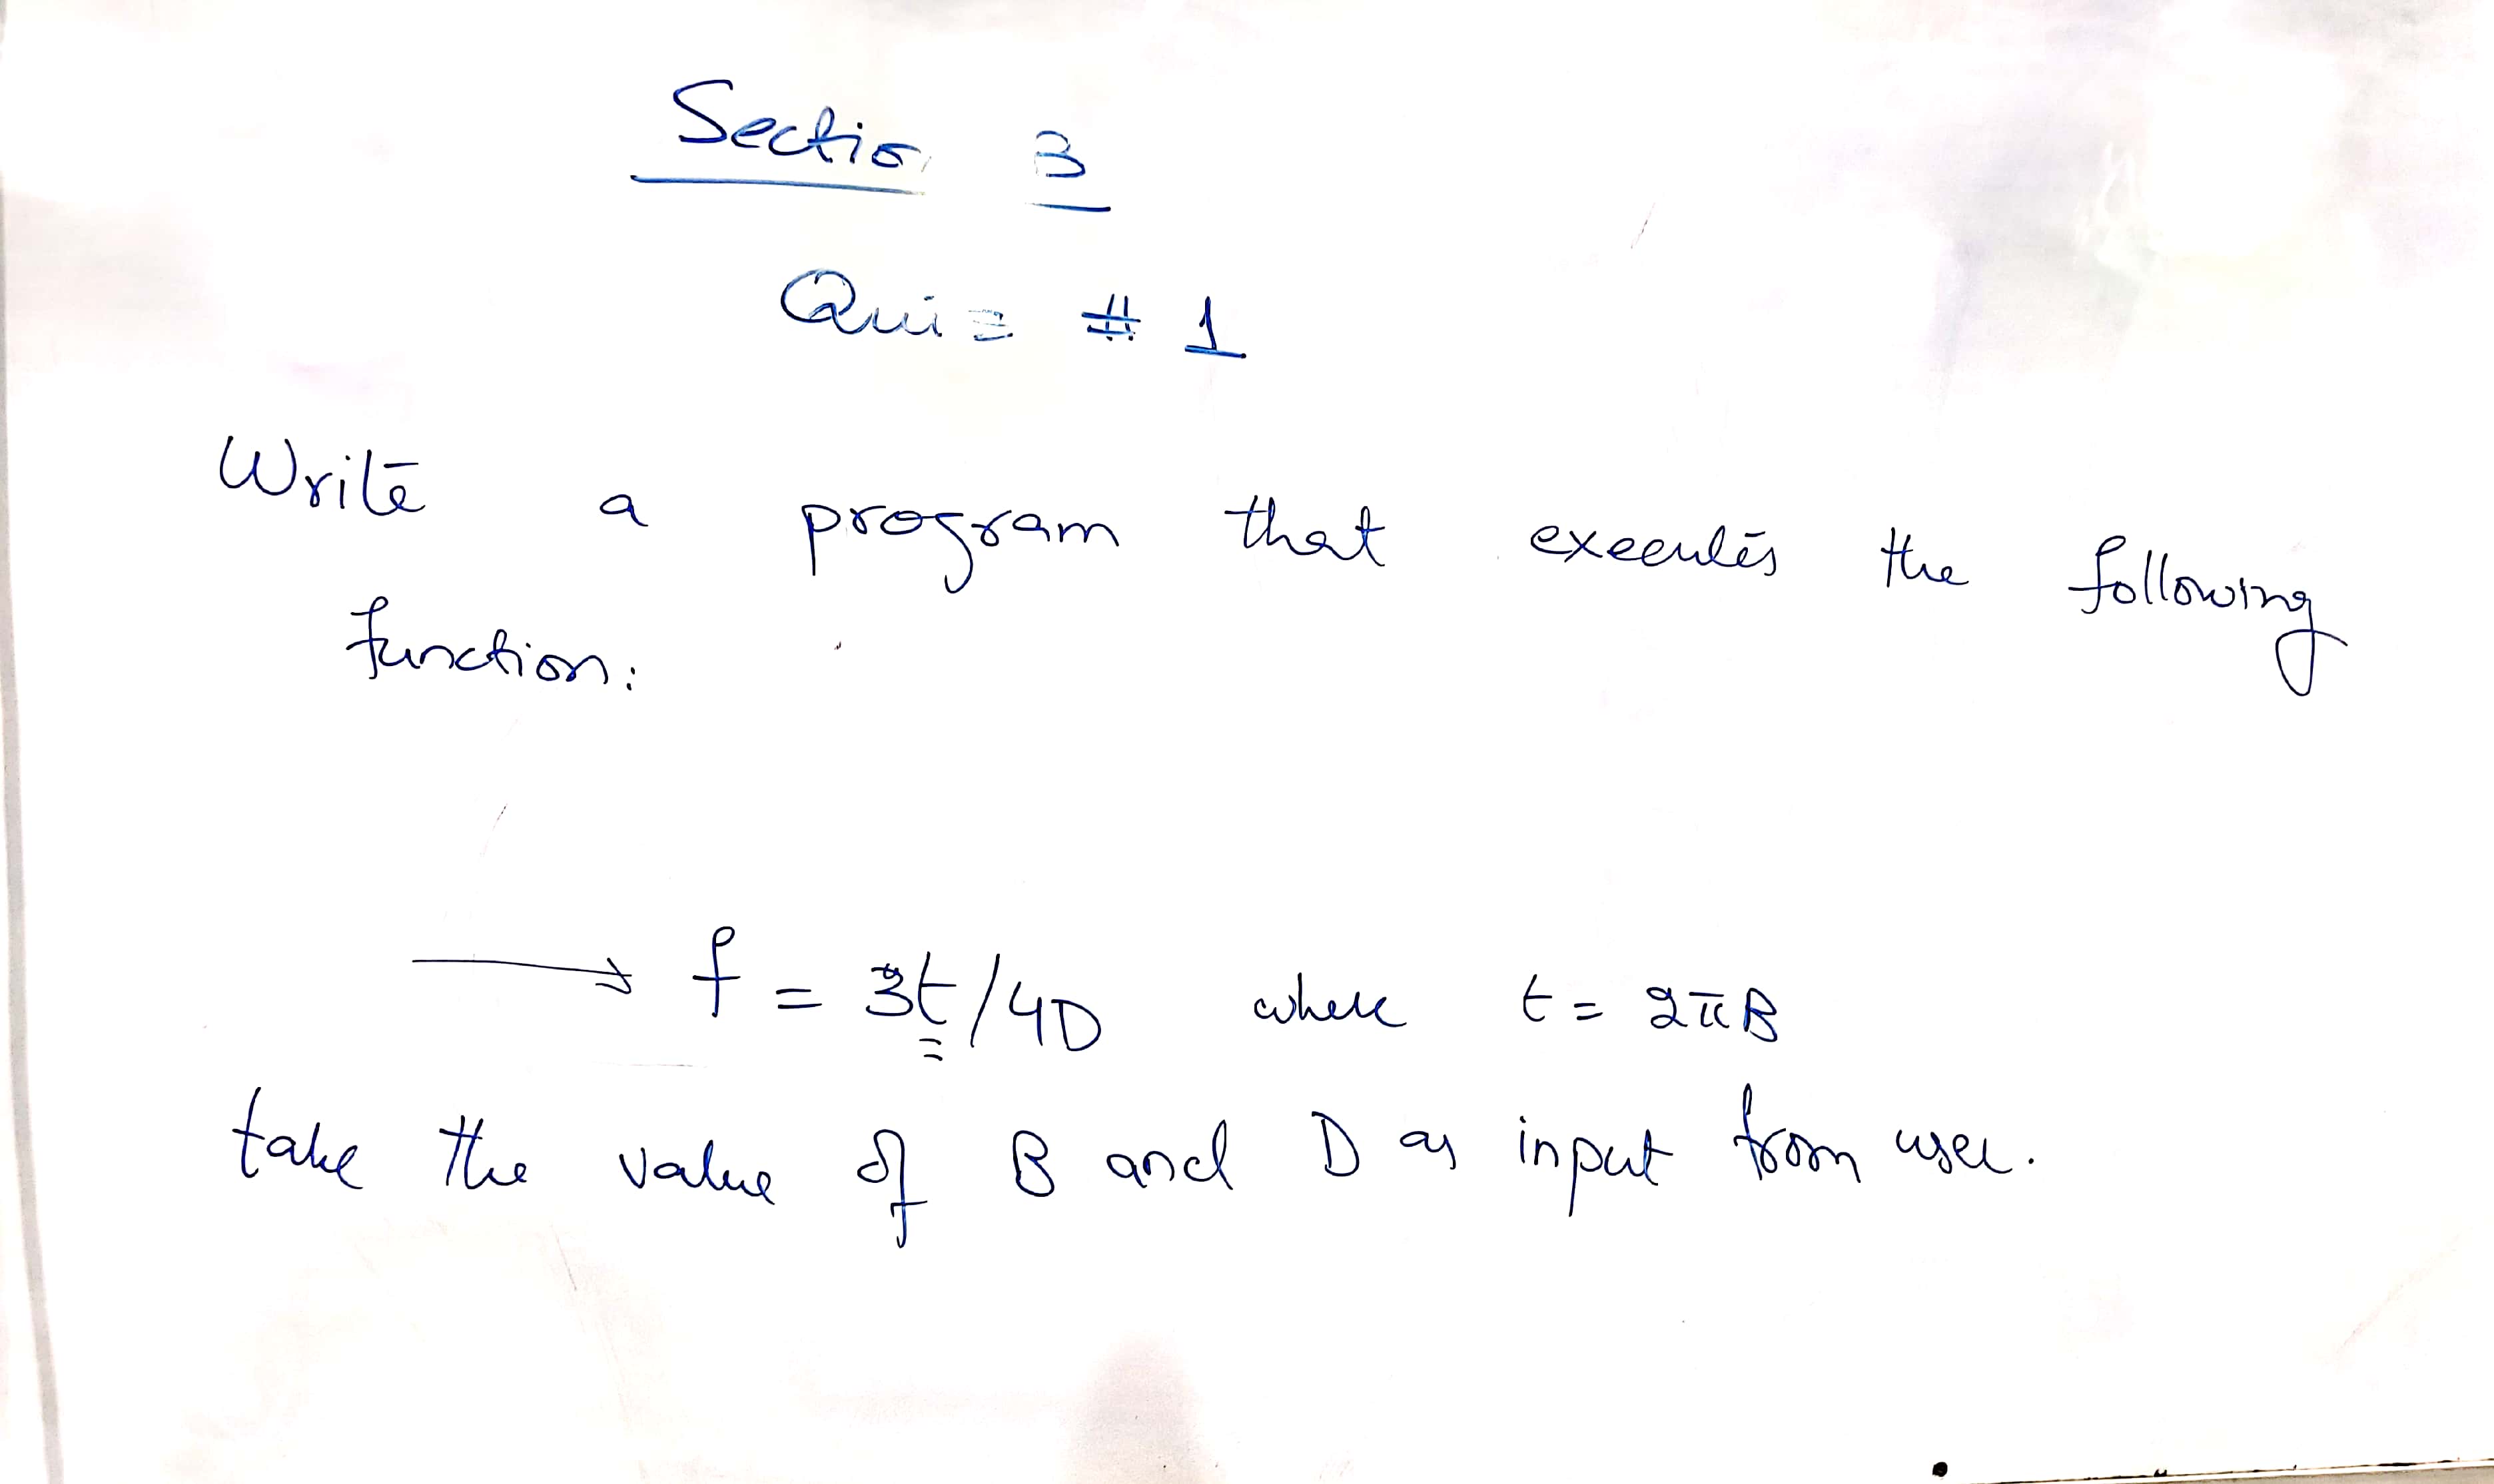 Section B
Quiz # 1
Write a program that executes the following
function:
→ f = 3t/4D where t = 2πB
take the value of B and D as input from user.